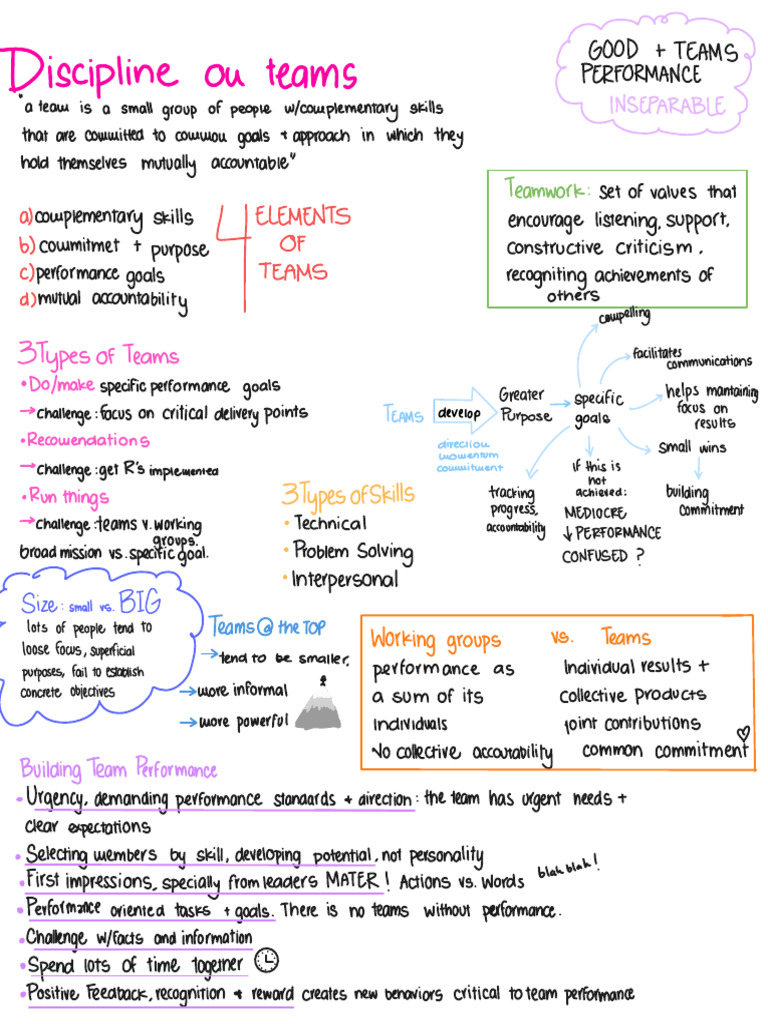 Discipline ou teams
GOOD + TEAMS
PERFORMANCE
INSEPARABLE
"a team is a small group of people w/complementary skills
that are committed to common goals + approach in which they
hold themselves mutually accountable"
a) complementary skills
b) commitmet + purpose
c) performance goals
d) mutual accountability
4 ELEMENTS
OF
TEAMS
Teamwork: set of values that
encourage listening, support,
constructive criticism,
recogniting achievements of
others
3 Types of Teams
• Do/make specific performance goals
→ challenge: focus on critical delivery points
• Recomendations
→ challenge: get R's implemented
• Run things
→ challenge: teams v. working
groups.
broad mission vs. specific goal.
TEAMS
develop
direction
momentum
commitment
Greater
Purpose
specific
goals
compelling
facilitates
communications
helps maintaning
focus on
results
small wins
building
commitment
If this is
not
achieved:
MEDIOCRE
↓ PERFORMANCE
CONFUSED ?
tracking
progress,
accountability
3 Types of Skills
• Technical
• Problem Solving
• Interpersonal
Size: small vs. BIG
lots of people tend to
loose focus, superficial
purposes, fail to establish
concrete objectives
Teams @ the TOP
→ tend to be smaller,
→ more informal
→ more powerful
Working groups vs. Teams
performance as
a sum of its
individuals
No collective accoutability
Individual results +
collective products
joint contributions
common commitment
Building Team Performance
• Urgency, demanding performance standards + direction: the team has urgent needs +
clear expectations
• Selecting members by skill, developing potential, not personality
• First impressions, specially from leaders MATER! Actions vs. Words blah blah!
• Performance oriented tasks + goals. There is no teams without performance.
• Challenge w/facts and information
• Spend lots of time together
• Positive Feedback, recognition + reward creates new behaviors critical to team performance